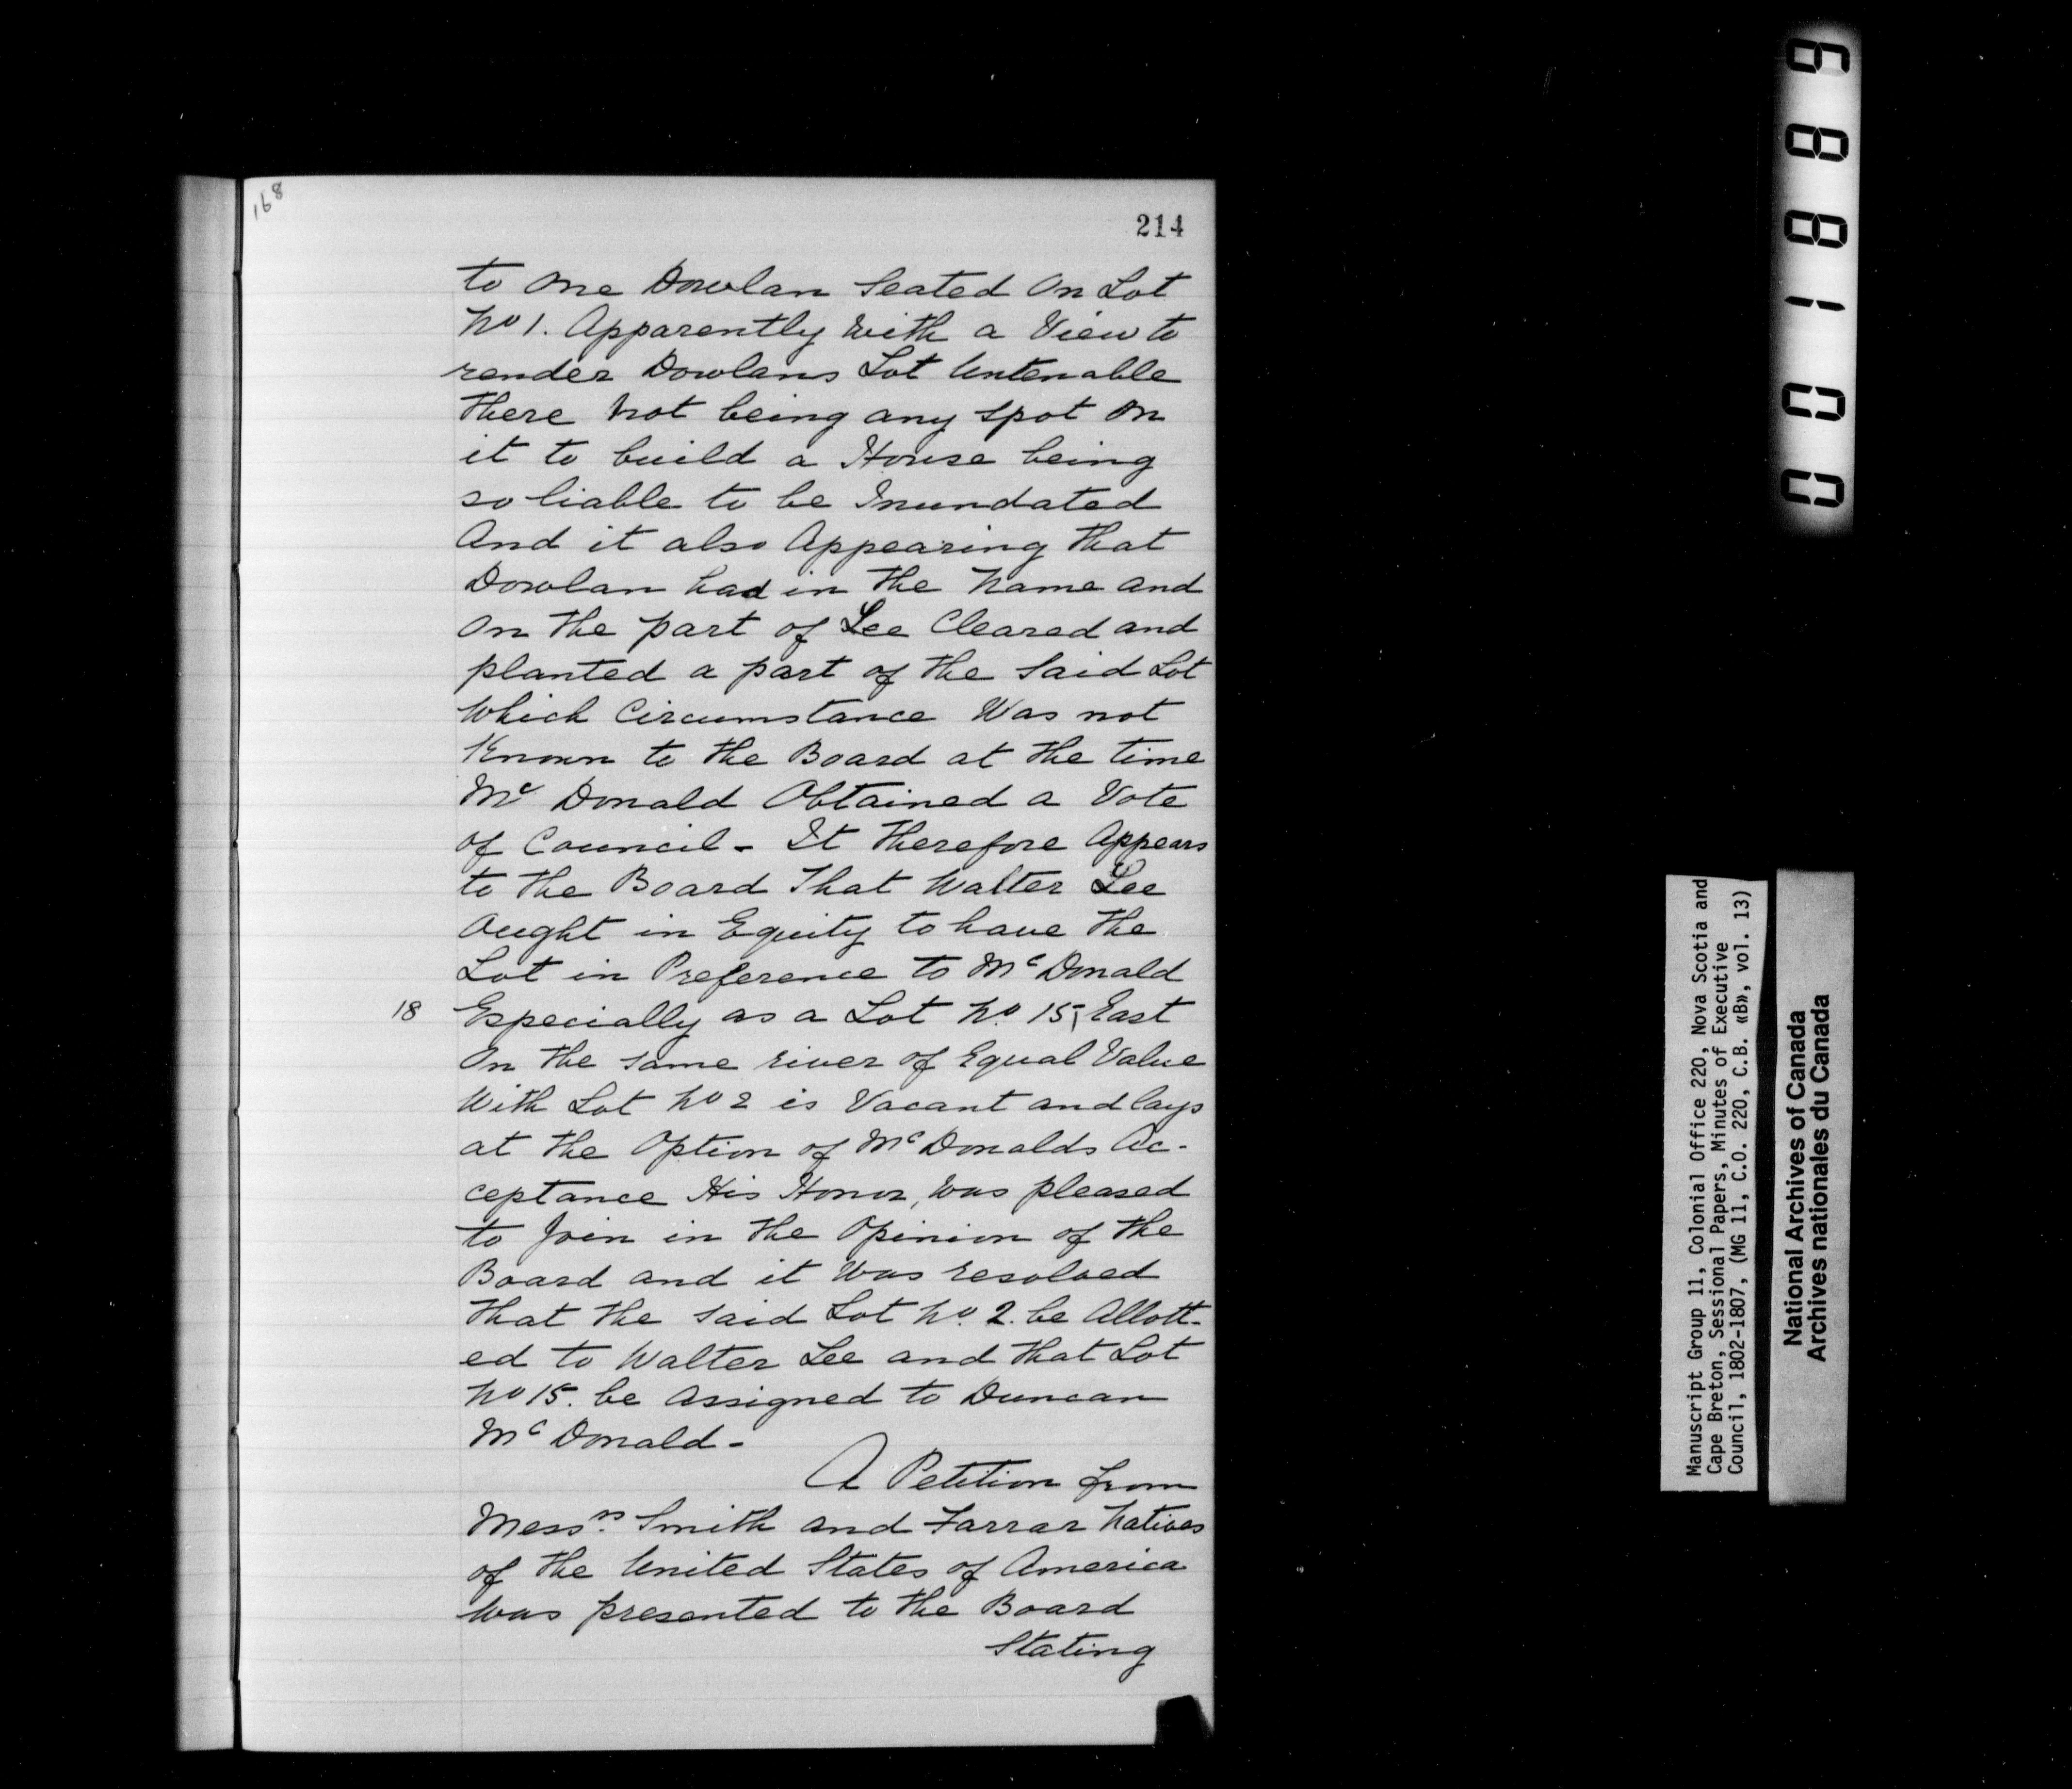 168
214
to One Dowlan Seated On Lot
No 1. Apparently with a View to
render Dowlans Lot Untenable
there not being any spot on
it to build a House being
so liable to be Inundated
And it also Appearing that
Dowlan had in the Name and
On the part of Lee Cleared and
planted a part of the Said Lot
Which Circumstance Was not
Known to the Board at the time
Mc Donald Obtained a Vote
of Council - It therefore Appears
to the Board That Walter Lee
Ought in Equity to have the
Lot in Preference to Mc Donald
18 Especially as a Lot No. 15, East
On the same river of Equal Value
With Lot No 2 is Vacant and lays
at the Option of Mc Donalds Ac-
ceptance His Honor, was pleased
to Join in the Opinion of the
Board and it was resolved
that the said Lot No. 2. be Allott-
ed to Walter Lee and that Lot
No 15. be assigned to Duncan
Mc Donald -
A Petition from
Messrs. Smith and Farrar Natives
of the United States of America
was presented to the Board
Stating
001889
Manuscript Group 11, Colonial Office 220, Nova Scotia and
Cape Breton, Sessional Papers, Minutes of Executive
Council, 1802-1807, (MG 11, C.O. 220, C.B. «B», vol. 13)
National Archives of Canada
Archives nationales du Canada